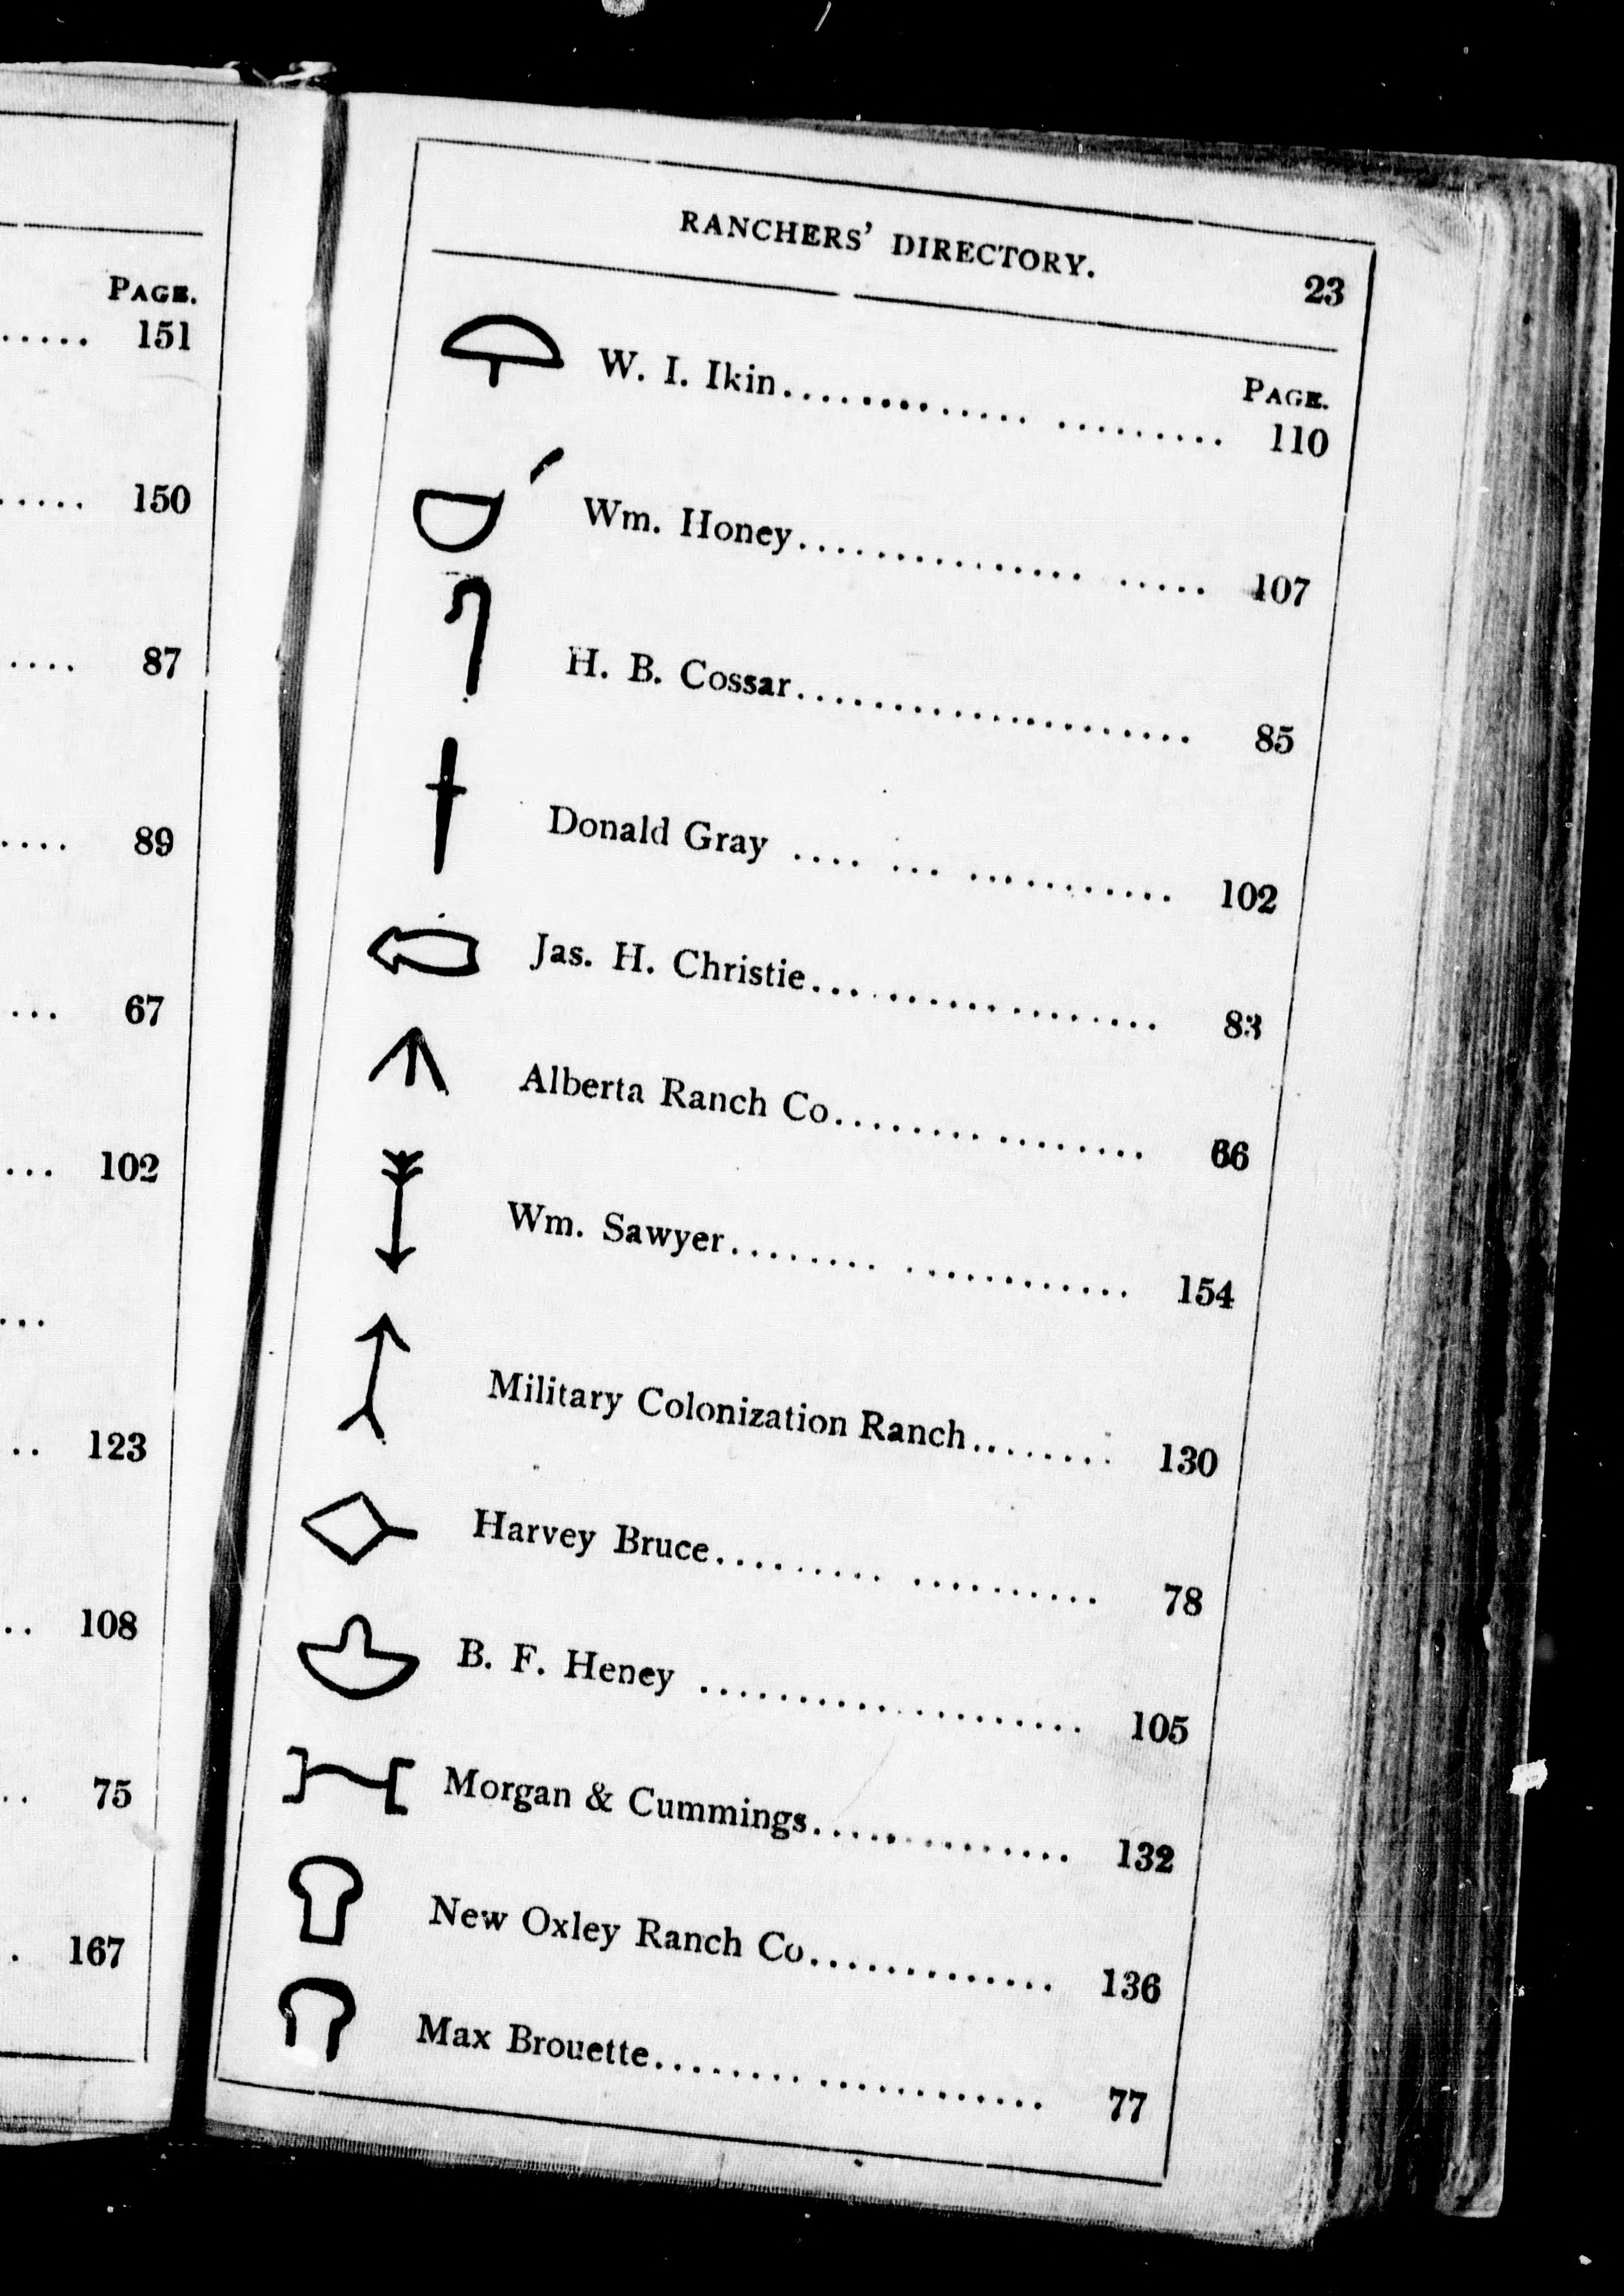 PAGE.
..... 151
..... 150
.... 87
.... 89
... 67
... 102
...
.. 123
.. 108
.. 75
. 167
RANCHERS' DIRECTORY. 23
PAGE.
W. I. Ikin...................... 110
Wm. Honey.................... 107
H. B. Cossar..................... 85
Donald Gray .... ... ........... 102
Jas. H. Christie.................. 83
Alberta Ranch Co................ 66
Wm. Sawyer........ ............ 154
Military Colonization Ranch........ 130
Harvey Bruce......... .......... 78
B. F. Heney .................... 105
Morgan & Cummings.............. 132
New Oxley Ranch Co............. 136
Max Brouette........ ............ 77